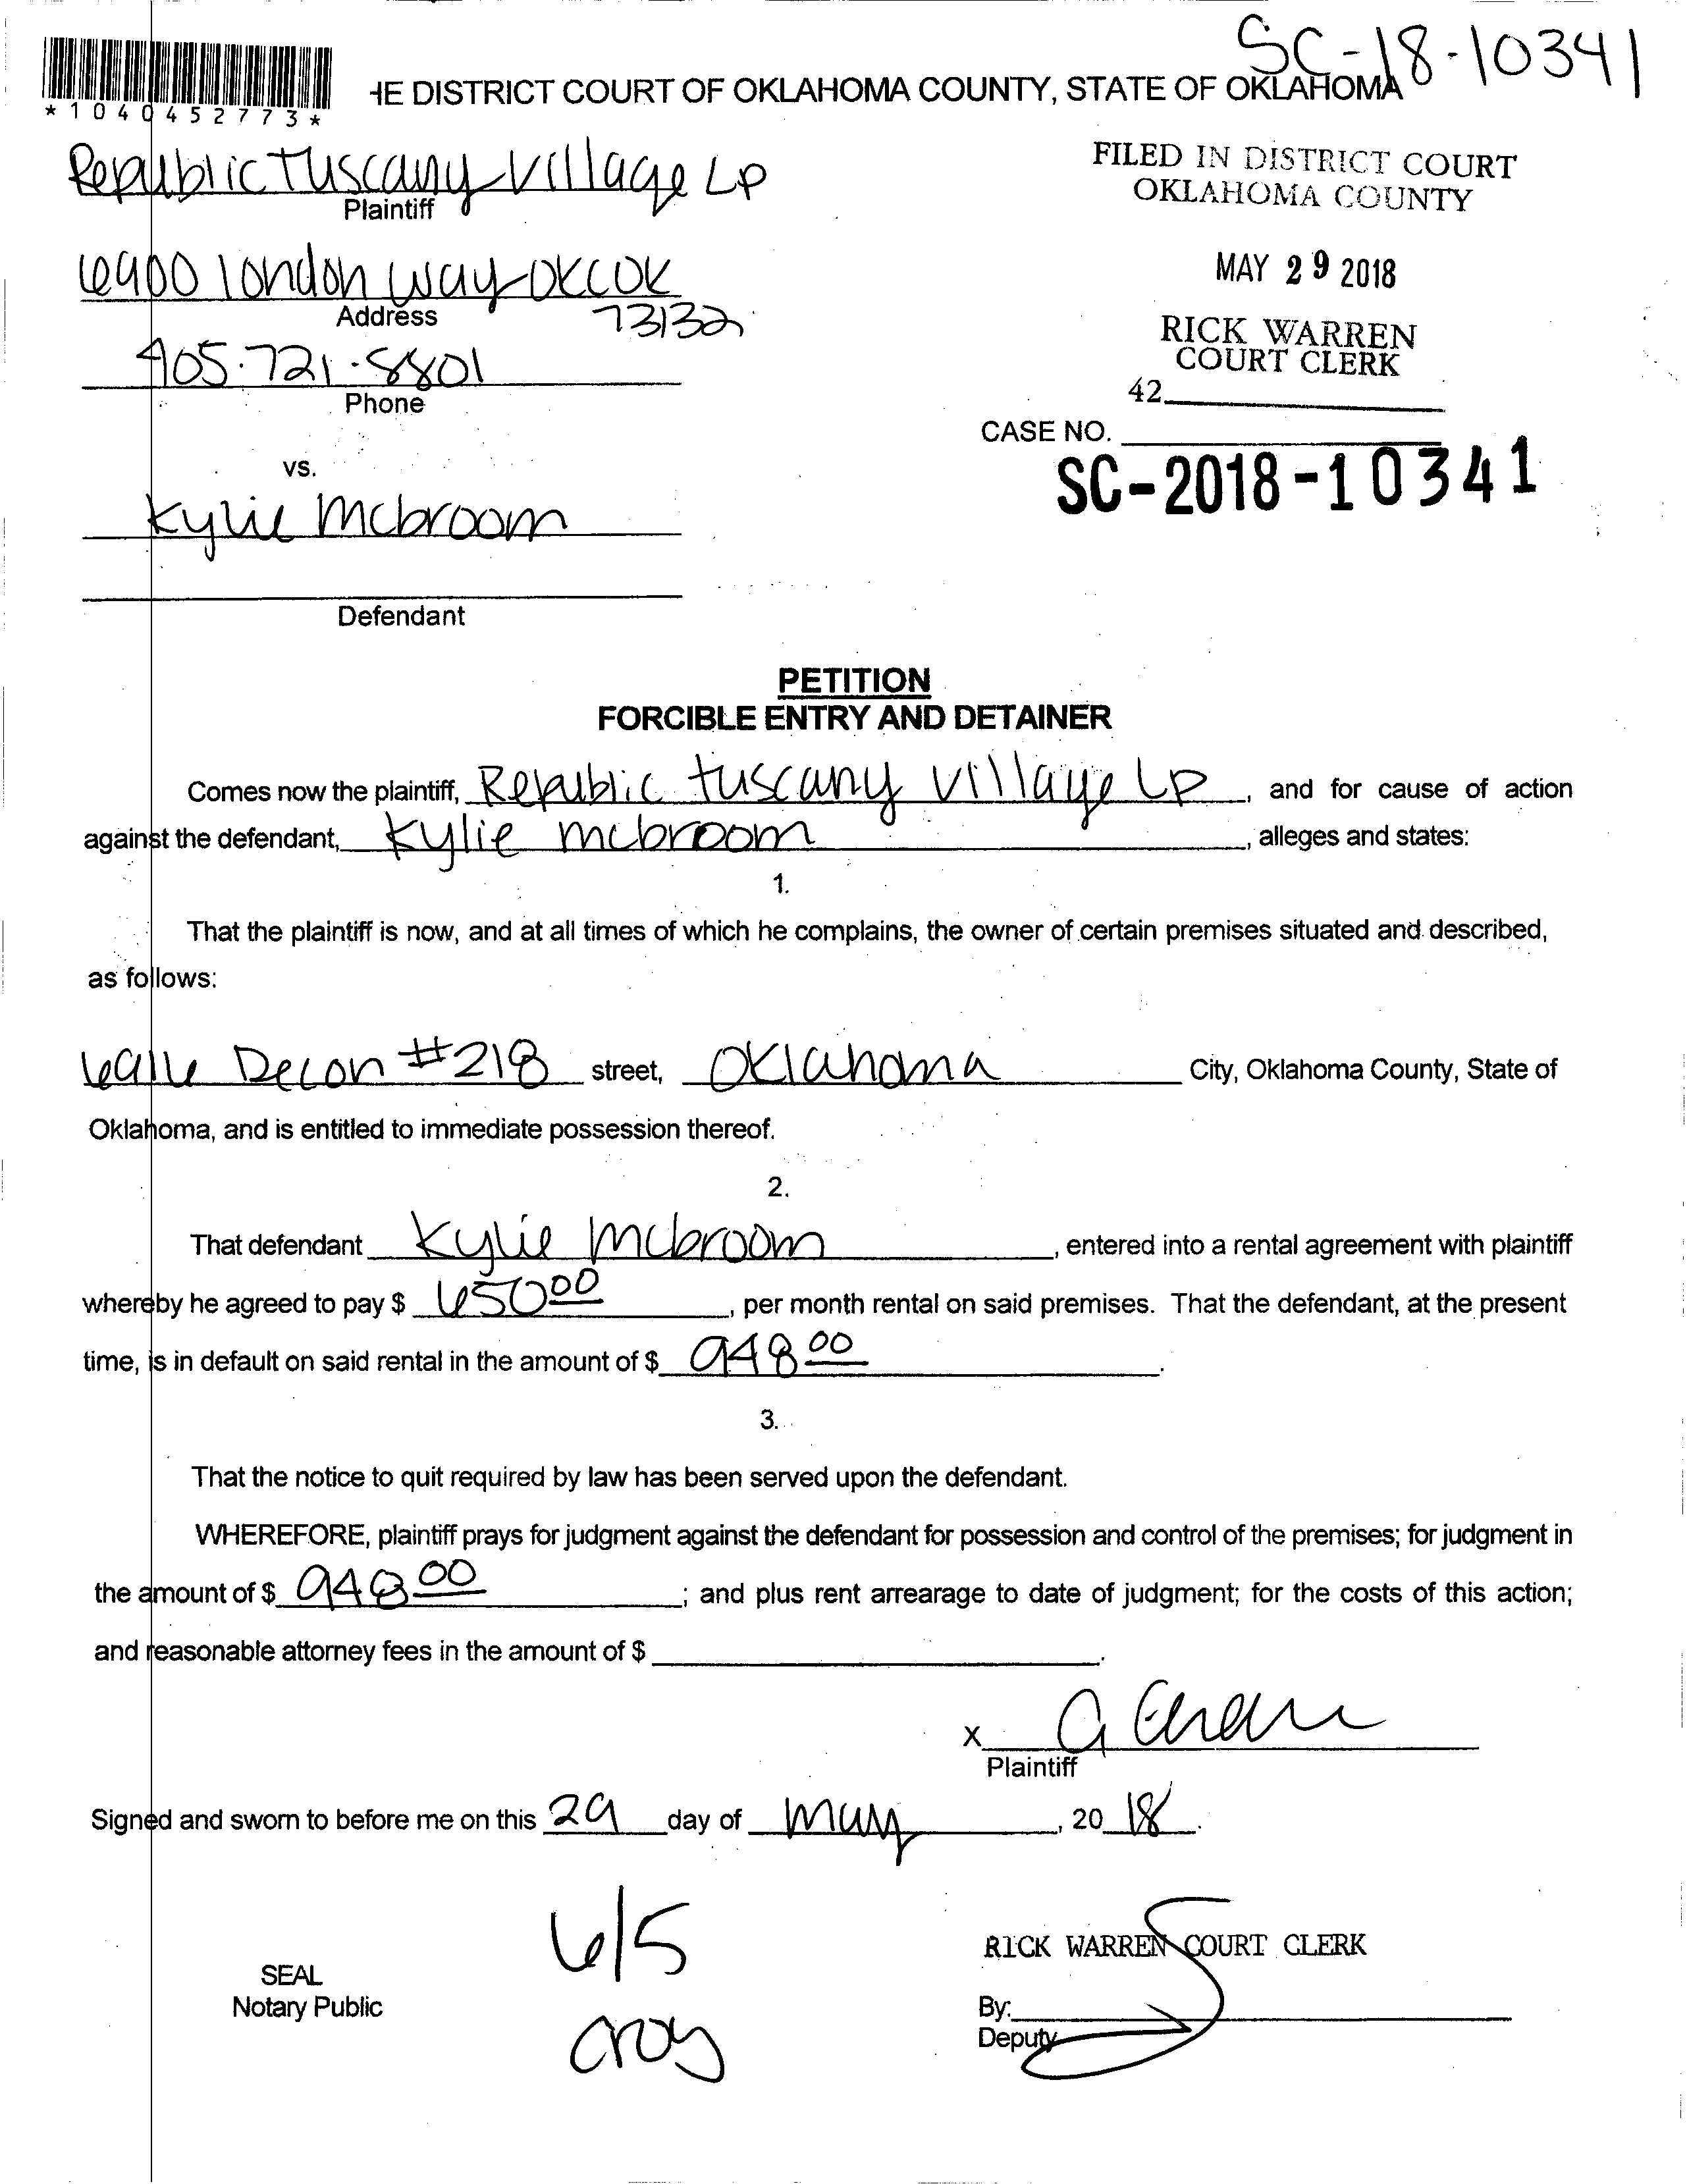 SC-18-10341
*1040452773*
HE DISTRICT COURT OF OKLAHOMA COUNTY, STATE OF OKLAHOMA
Republic Tuscany Village LP
Plaintiff
FILED IN DISTRICT COURT
OKLAHOMA COUNTY
6900 london way OKC OK
Address
73132
MAY 29 2018
405.721.8801
Phone
RICK WARREN
COURT CLERK
42
CASE NO.
SC-2018-10341
vs.
Kylie Mcbroom
Defendant
PETITION
FORCIBLE ENTRY AND DETAINER
Comes now the plaintiff, Republic tuscany village LP, and for cause of action
against the defendant, Kylie mcbroom, alleges and states:
1.
That the plaintiff is now, and at all times of which he complains, the owner of certain premises situated and described,
as follows:
#218 street, Oklahoma City, Oklahoma County, State of
Oklahoma, and is entitled to immediate possession thereof.
2.
That defendant Kylie Mcbroom, entered into a rental agreement with plaintiff
whereby he agreed to pay $ 650.00, per month rental on said premises. That the defendant, at the present
time, is in default on said rental in the amount of $ 948 00.
3.
That the notice to quit required by law has been served upon the defendant.
WHEREFORE, plaintiff prays for judgment against the defendant for possession and control of the premises; for judgment in
the amount of $ 948 00; and plus rent arrearage to date of judgment; for the costs of this action;
and reasonable attorney fees in the amount of $
X
Plaintiff
Signed and sworn to before me on this 29 day of May, 20 18.
6/5
RICK WARREN COURT CLERK
SEAL
Notary Public
By:
Deputy
croy